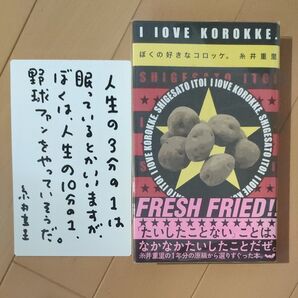 人生の3分の1は
眠っているとかいいますが、
ぼくは、人生の10分の1、
野球ファンをやっていそうだ。
糸井重里
I LOVE KOROKKE.
ぼくの好きなコロッケ。 糸井重里
SHIGESATO ITOI
I LOVE KOROKKE. SHIGESATO ITOI I LOVE KOROKKE. SHIGESATO ITOI
FRESH FRIED!
たいしたことないことは、
なかなかたいしたことだぜ。
糸井重里の1年分の原稿から選りすぐった本。